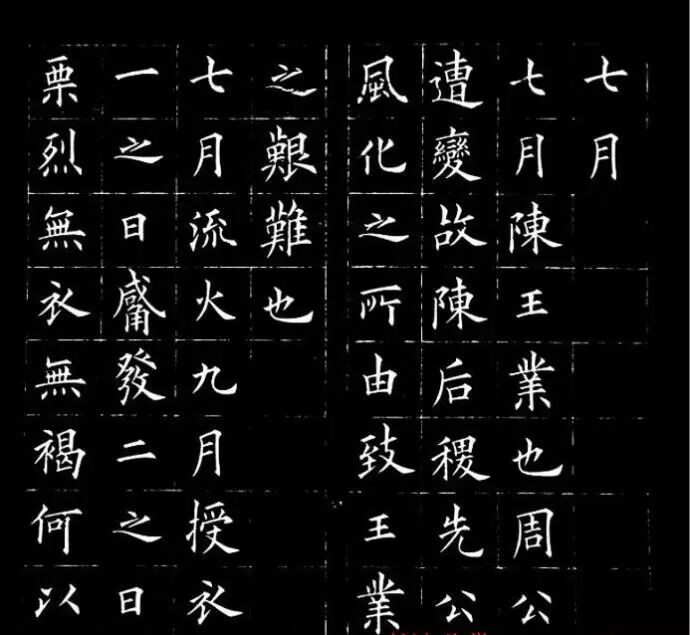 七月
七月陳王業也周公
遭變故陳后稷先公
風化之所由致王業
之艱難也
七月流火九月授衣
一之日觱發二之日
栗烈無衣無褐何以